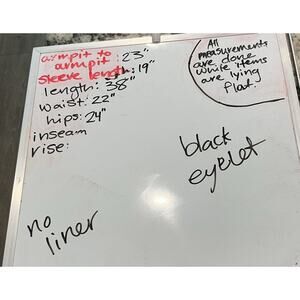 armpit to
armpit: 23"
sleeve length: 19"
length: 38"
waist: 22"
hips: 24"
inseam
rise:
All
measurements
are done
while items
are lying
flat.
black
eyelet
no
liner